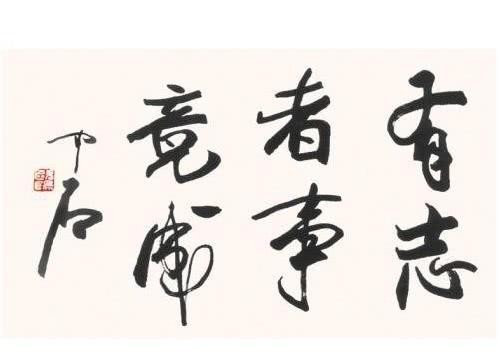 有志
者事
竟成
中石